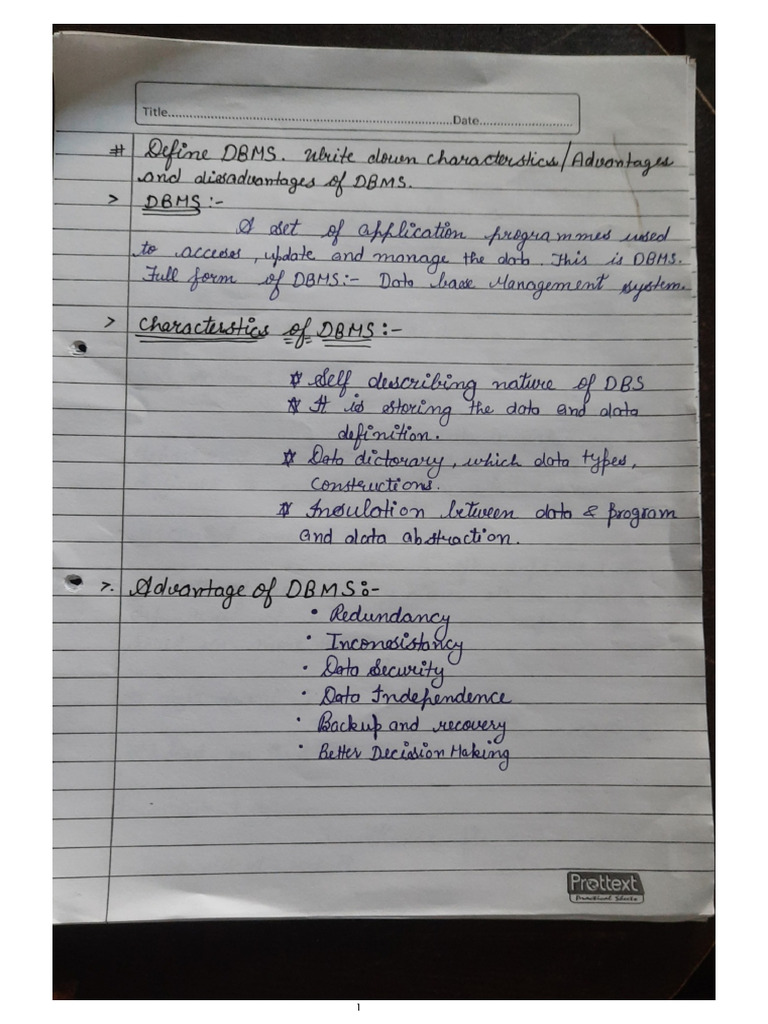 Title..........Date..........
# Define DBMS. Write down characterstics/Advantages
and disadvantages of DBMS.
> DBMS:-
A set of application programmes used
to access, update and manage the data. This is DBMS.
Full form of DBMS:- Data base Management system.
> Characterstics of DBMS:-
☆ Self describing nature of DBS
☆ It is storing the data and data
definition.
☆ Data dictorary, which data types,
constructions.
☆ Insulation between data & program
and data abstraction.
>. Advantage of DBMS:-
• Redundancy
• Inconsistancy
• Data Security
• Data Independence
• Backup and recovery
• Better Decision Making
Prottext
Practical Sheets
1